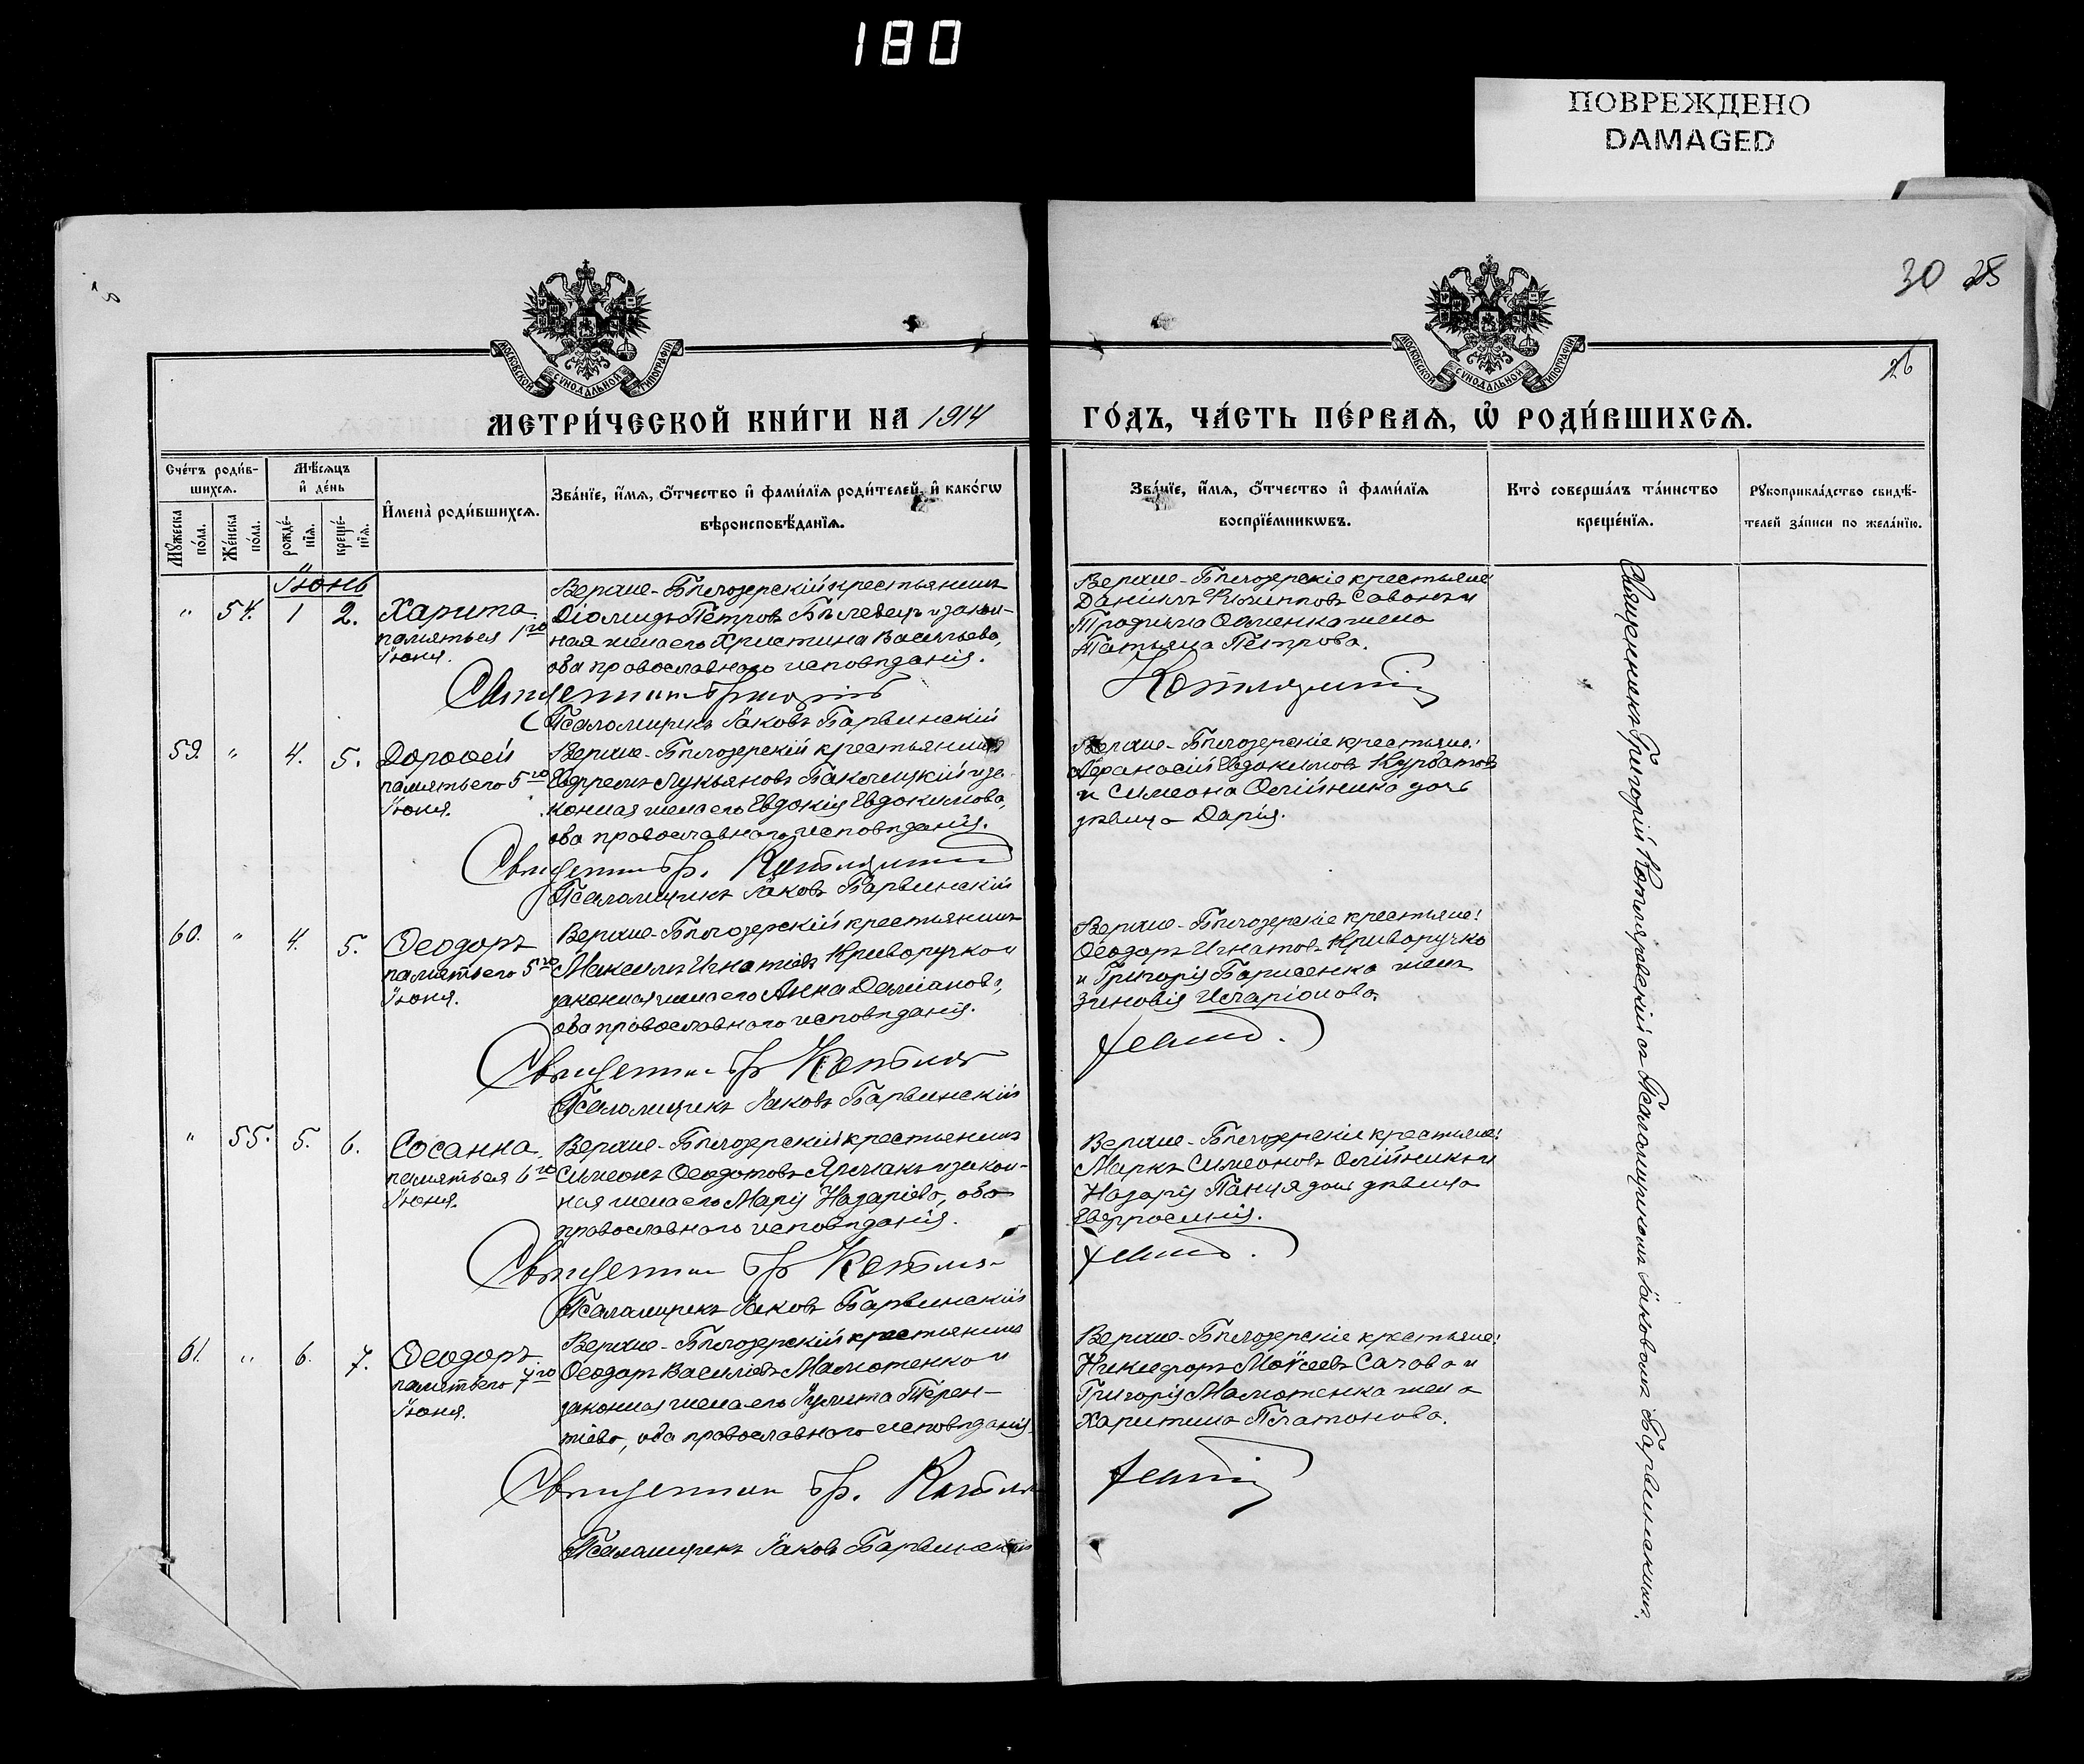 180
ПОВРЕЖДЕНО
DAMAGED
30 28
26
МОСКОВСКОЙ СѴНОДАЛЬНОЙ ТИПОГРАФІИ
МОСКОВСКОЙ СѴНОДАЛЬНОЙ ТИПОГРАФІИ
МЕТРИ́ЧЕСКОЙ КНИ́ГИ НА 1914
ГО́ДЪ, ЧА́СТЬ ПЕ́РВАѦ, Ѡ҆ РОДИ́ВШИХСѦ.
Сче́тъ роди́в-
шихсѧ.
Мѣ́сѧцъ
и҆ де́нь
Мꙋ́жеска
по́ла.
Же́нска
по́ла.
рожде́-
нїѧ.
креще́-
нїѧ.
И҆мена̀ роди́вшихсѧ.
Зва́нїе, и҆́мѧ, ѻ҆́тчество и҆ фами́лїѧ роди́телей, и҆ како́гѡ
вѣроисповѣ́данїѧ.
Зва́нїе, и҆́мѧ, ѻ҆́тчество и҆ фами́лїѧ
воспрїе́мникѡвъ.
Кто̀ соверша́лъ та́инство
креще́нїѧ.
Рꙋкоприкла́дство свидѣ́-
телей за́писи по жела́нїю.
Іюнь
" 54. 1 2.
Харита
память ея 1го
Іюня.
Верхне-Бѣлозерскій крестьянинъ
Діомидъ Петровъ Бѣлевецъ и закон-
ная жена его Христина Васильева,
оба православного исповѣданія.
Священникъ Григорій
Псаломщикъ Іаковъ Барвинскій
Верхне-Бѣлозерскіе крестьяне
Даніилъ Филипповъ и
жена
Татьяна Петрова.
Котляревскій
59. " 4. 5.
Дороѳей
память его 5го
Іюня.
Верхне-Бѣлозерскій крестьянинъ
Ефремъ Лукьяновъ и за-
конная жена его Евдокія Евдокимова,
оба православного исповѣданія.
Священникъ Гр. Котляревскій
Псаломщикъ Іаковъ Барвинскій
Верхне-Бѣлозерскіе крестьяне:
Аѳанасій Евдокимовъ Курбатовъ
и Симеона Олійника дочь
дѣвица Дарія.
60. " 4. 5.
Ѳеодоръ
память его 5го
Іюня.
Верхне-Бѣлозерскій крестьянинъ
Максимъ Игнатіевъ Криворучко и
законная жена его Анна Даміанова,
оба православного исповѣданія.
Священникъ Гр Котляр
Псаломщикъ Іаковъ Барвинскій
Верхне-Бѣлозерскіе крестьяне:
Ѳеодоръ Игнатовъ Криворучко
и Григорія Борисенко жена
Зиновія Иларіонова.
" 55. 5. 6.
Сосанна
память ея 6го
Іюня.
Верхне-Бѣлозерскій крестьянинъ
Симеонъ Ѳеодотовъ Ярмакъ и закон-
ная жена его Марія Назаріева, оба
православного исповѣданія.
Священник Гр Котля
Псаломщикъ Іаковъ Барвинскій
Верхне-Бѣлозерскіе крестьяне:
Маркъ Симеоновъ Олійникъ и
Назарія дочь дѣвица
Евфросинія.
61. " 6. 7.
Ѳеодоръ
память его 7го
Іюня.
Верхне-Бѣлозерскій крестьянинъ
Ѳеодоръ Василіевъ Малютенко и
законная жена его Іулита Терен-
тіева, оба православного исповѣданія.
Священник Гр. Котля
Псаломщикъ Іаковъ Барвинскій
Верхне-Бѣлозерскіе крестьяне:
Никифоръ Моѵсеевъ Сачова и
Григорія Малютенка жена
Харитина Платонова.
Священникъ Григорій Котляревскій съ Псаломщикомъ Іаковомъ Барвинскимъ.